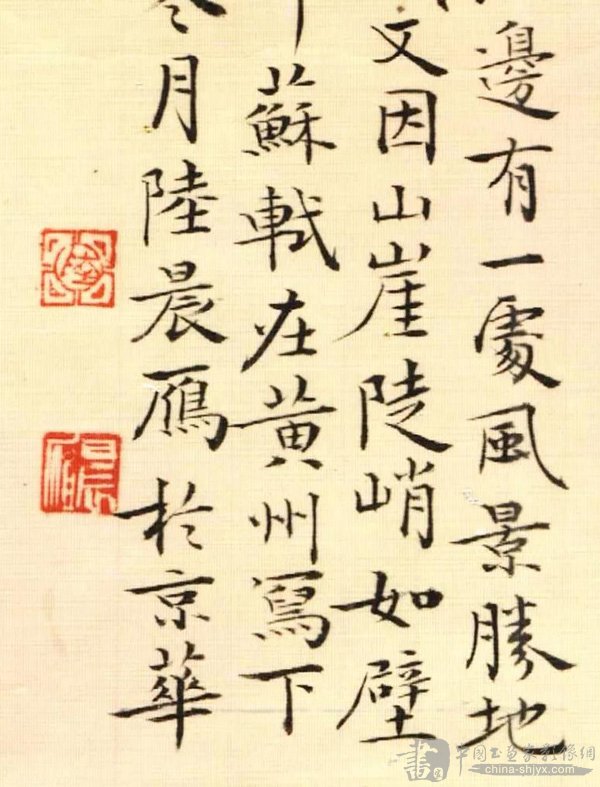 邊有一處風景勝地
文因山崖陡峭如壁
蘇軾在黄州寫下
月陸晨雁於京華
中国书画家影像網
china-shjyx.com